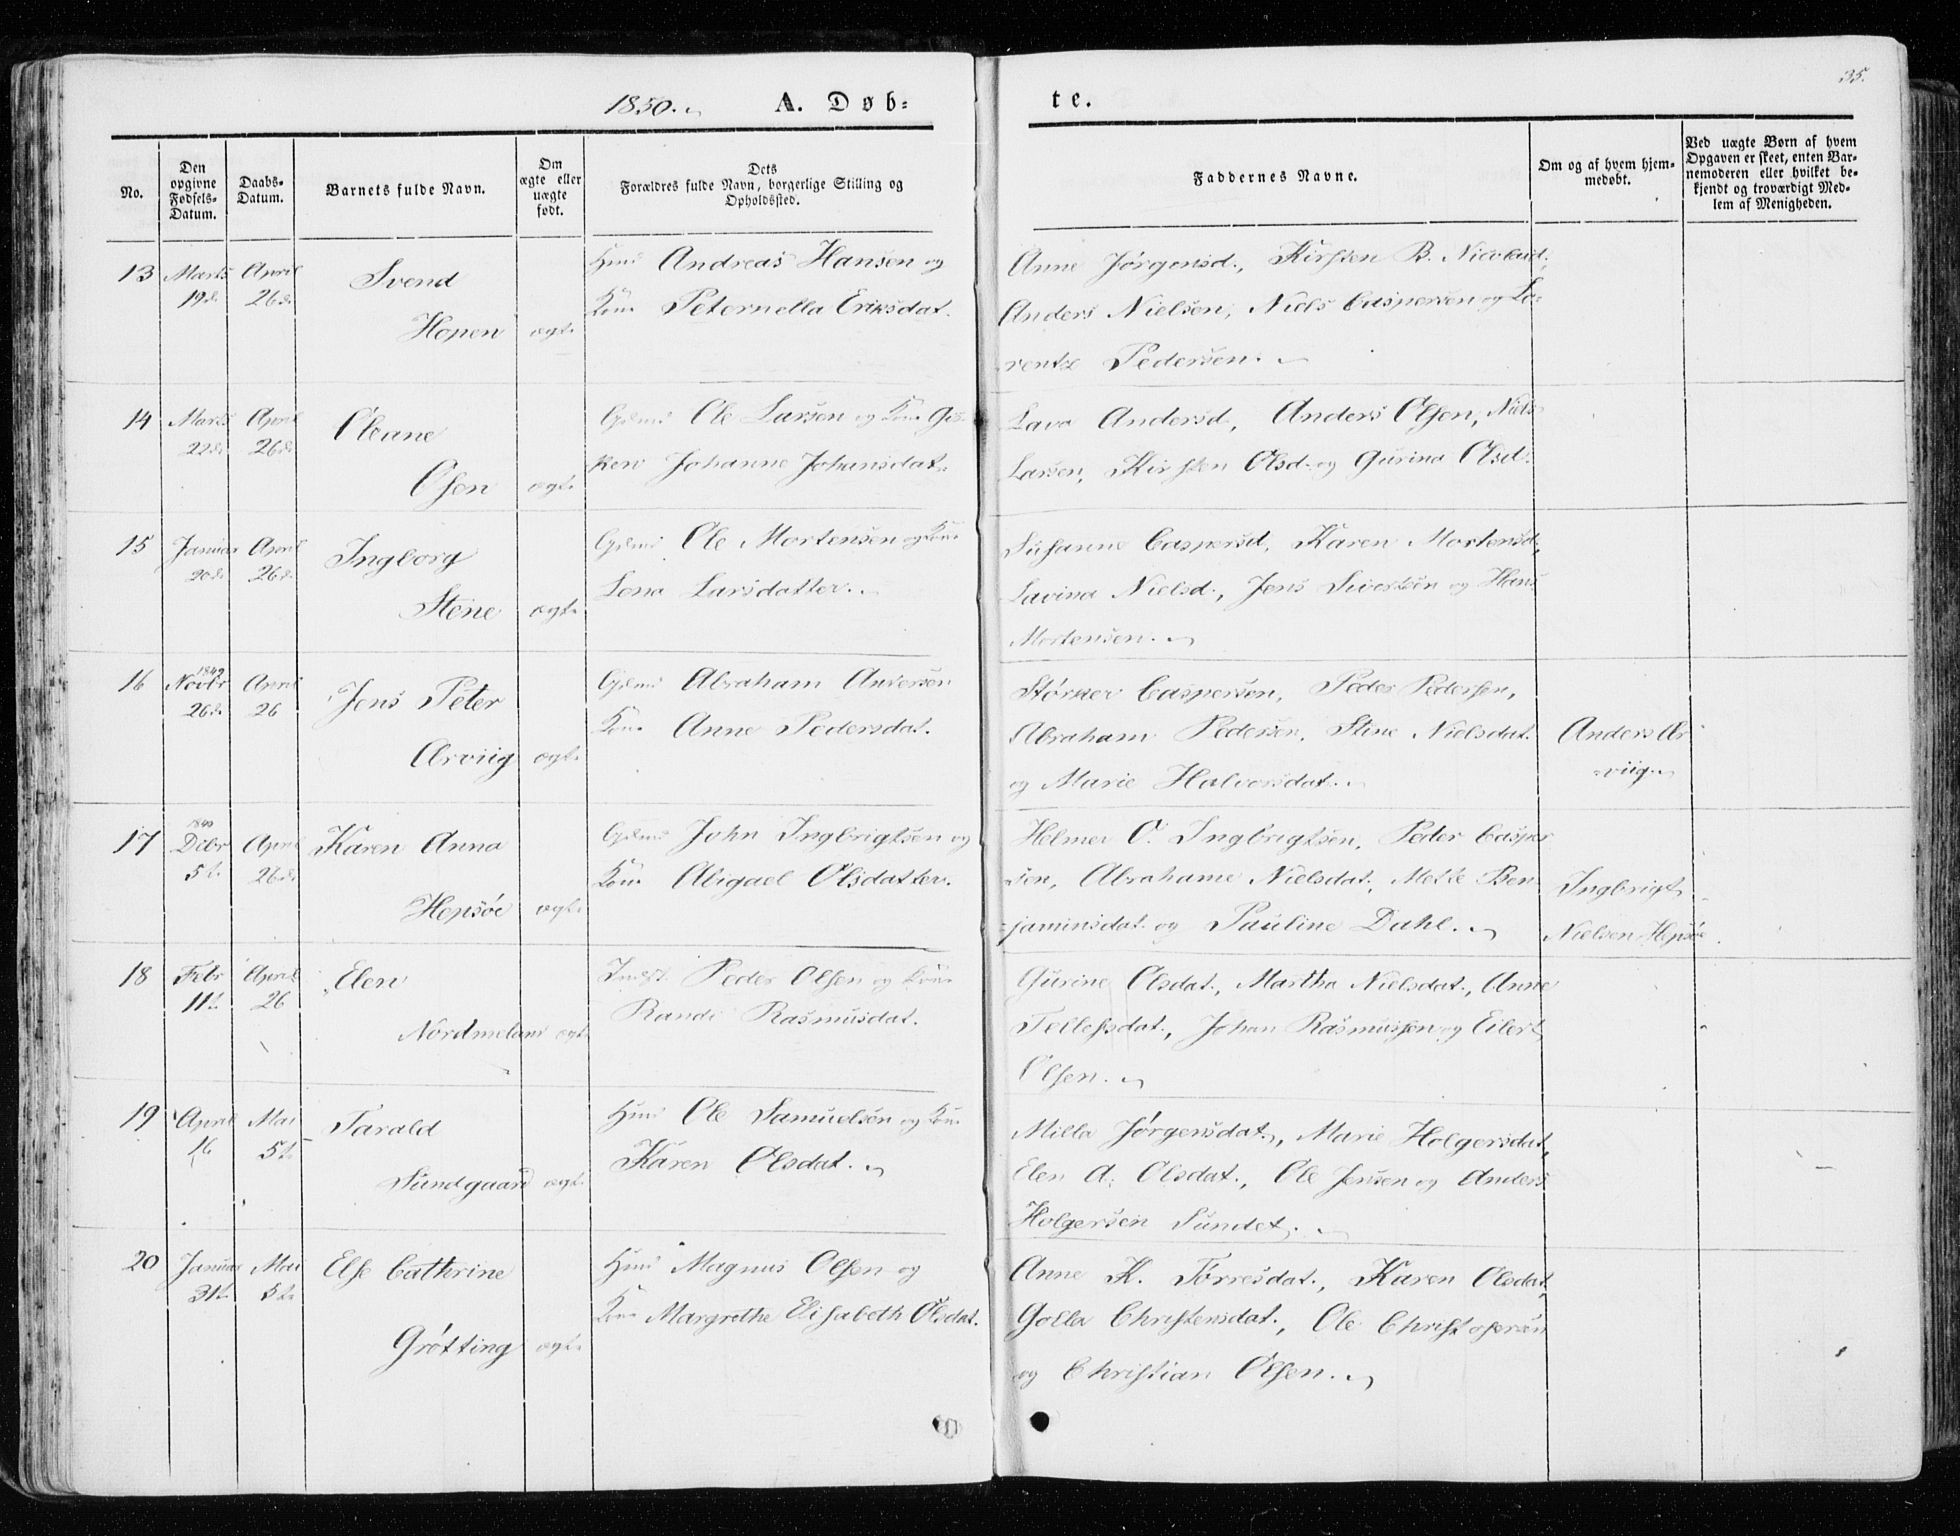 35.
1850. A. Døb-
te.
No.
Den opgivne Fødsels-Datum.
Daabs-Datum.
Barnets fulde Navn.
Om ægte eller uægte født.
Dets Forældres fulde Navn, borgerlige Stilling og Opholdssted.
Faddernes Navne.
Om og af hvem hjem-medøbt.
Ved uægte Børn af hvem Opgaven er skeet, enten Bar-nemoderen eller hvilket be-kjendt og troværdigt Med-lem af Menigheden.
13 Marts April Svend Andreas Hansen og Anne Jørgensd., Kirsten B. Nicolaid.,
19d. 26d. Hopen ægt. Kone Peternella Eriksdat. Anders Nielsen, Niels Caspersen og La-
rentze Pedersen.
14 Marts April Oleane Gdmd Ole Larsen og Kone Gis- Lava Andersd., Anders Olsen, Niels
22d. 26d. Osen ægt. ken Johanne Johansdat. Larsen, Kirsten Olsd. og Gurina Olsd.
15 Januar April Ingborg Gdmd Ole Mortensen og Kone Susanne Caspersd., Karen Mortensd.,
20d. 26d. Stene ægt. Lena Larsdatter. Lavina Nielsd., Jens Sivertsen og Hans
Mortensen.
16 1849 Novbr April Jens Peter Gdmd Abraham Andersen Størker Caspersen, Peder Pedersen,
26d. 26 Arviig ægt. Kone Anne Pedersdat. Abraham Pedersen, Stine Nielsdat. Anders Ar-
og Marie Halvorsdat. viig.
17 Dcbr April Karen Anna Gdmd John Ingbrigtsen og Helmer O. Ingbrigtsen, Peder Casper-
5t. 26d. Hepsøe ægt. Kone Abigael Olsdatter. sen, Abrahame Nielsdat., Mette Ben- Ingbrigt
jaminsdat. og Pauline Dahl. Nielsen Hepsøe.
18 Febr April Elen Indst. Peder Olsen og Kone Gurine Olsdat., Martha Nielsdat., Anne
11t. 26 Nordmeland ægt. Randi Rasmusdat. Tellefsdat., Johan Rasmussen og Eilert
Olsen.
19 April Mai Tarald Ole Samuelsen og Kone Milla Jørgensdat., Marie Holgersdat.,
16 5t. Sundgaard ægt. Karen Olsdat. Elen A. Olsdat., Ole Jensen og Anders
Holgersen Sundet.
20 Januar Mai Else Cathrine Magnus Olsen og Anne K. Torresdat., Karen Olsdat.,
31t. 5t. Grøtting ægt. Kone Margrethe Elisabeth Olsdat. Golla Christensdat., Ole Christophersen
og Christian Olsen.